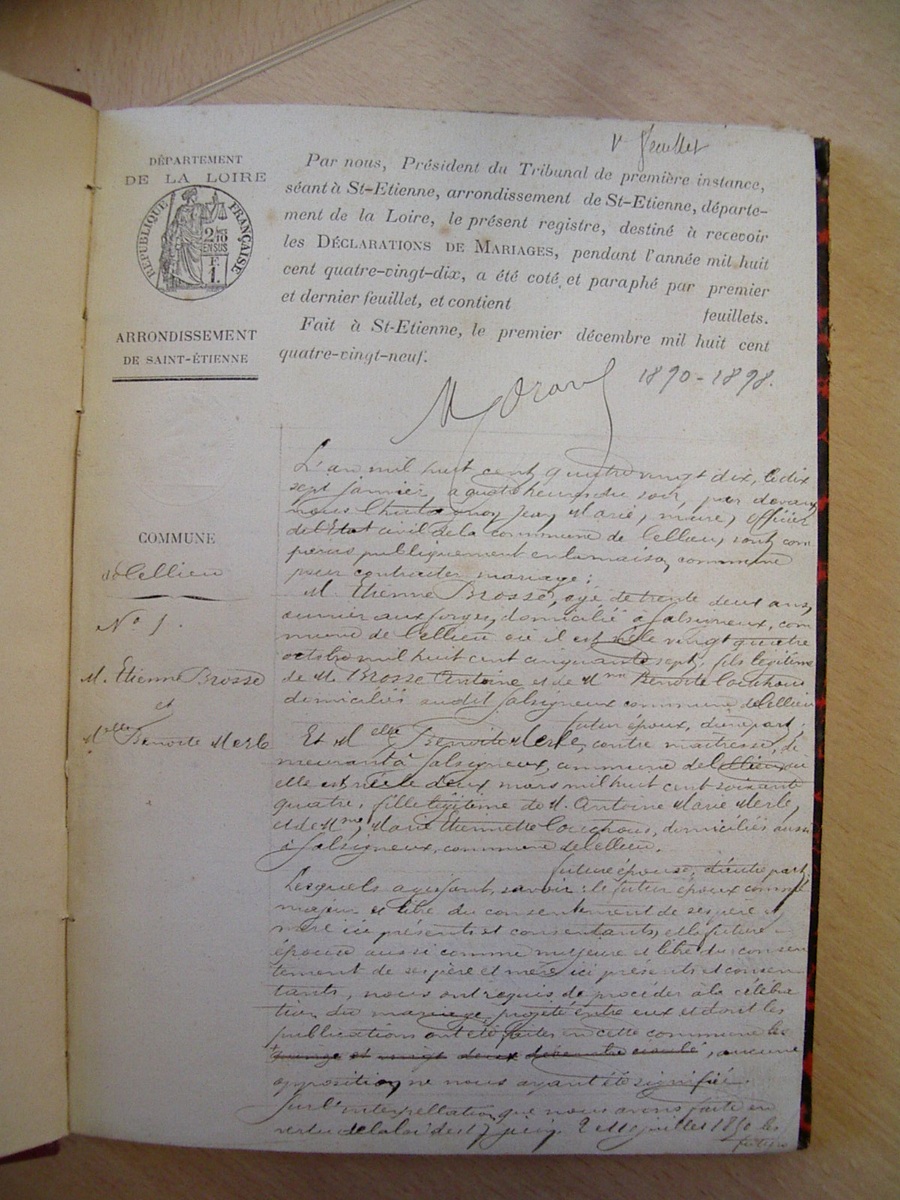 1er feuillet
DÉPARTEMENT
DE LA LOIRE
RÉPUBLIQUE FRANÇAISE
ARRONDISSEMENT
DE SAINT-ÉTIENNE
Par nous, Président du Tribunal de première instance,
séant à St-Etienne, arrondissement de St-Etienne, départe-
ment de la Loire, le présent registre, destiné à recevoir
les DÉCLARATIONS DE MARIAGES, pendant l'année mil huit
cent quatre-vingt-dix, a été coté et paraphé par premier
et dernier feuillet, et contient feuillets.
Fait à St-Etienne, le premier décembre mil huit cent
quatre-vingt-neuf.
1890-1898.
COMMUNE
de Cellieu
No 1.
M. Etienne Brosse
et
Melle Benoite Merle
L'an mil huit cent quatre vingt dix, le dix
sept janvier, à quatre heures du soir, par devant
nous Jean Marie, maire, officier
de l'Etat civil de la commune de Cellieu, sont com
parus publiquement en la maison commune
pour contracter mariage:
M. Etienne Brosse, agé de trente deux ans,
ouvrier aux forges, domicilié à Salsigneux, com
mune de Cellieu où il est né le vingt quatre
octobre mil huit cent cinquante sept, fils légitime
de M. Brosse Antoine et de Mme Benoite Couchoud
domiciliés audit Salsigneux commune de Cellieu
futur époux, d'une part;
Et Melle Benoite Merle, contre maîtresse, de
meurant à Salsigneux, commune de Cellieu où
elle est née le deux mars mil huit cent soixante
quatre, fille légitime de M. Antoine Marie Merle,
et de Mme Marie Couchoud, domiciliés aussi
à Salsigneux, commune de Cellieu.
future épouse, d'autre part,
Lesquels agissant, savoir: le futur époux comme
majeur et libre du consentement de ses père et
mère ici présents et consentants, et la future
épouse aussi comme majeure et libre du consen
tement de ses père et mère ici présents et consen
tants, nous ont requis de procéder à la célébra
tion du mariage projeté entre eux et dont les
publications ont été faites en cette commune les
quinze et vingt deux décembre , aucune
opposition ne nous ayant été signifiée.
Sur l'interpellation que nous avons faite en
vertu de la loi des 17 juin 2 10 juillet 1850 les
futurs